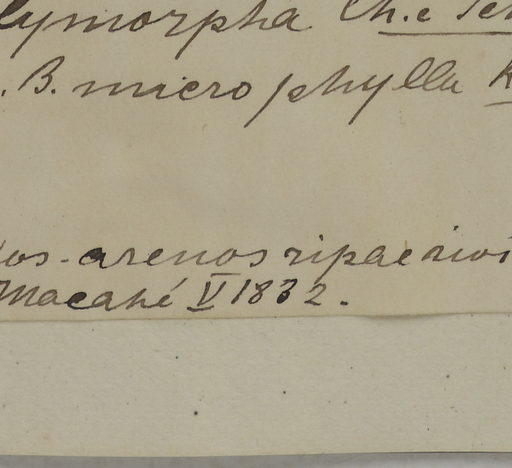 lymorpha Ch. e
. B. microphylla
os. arenos ripae rivi
Macahé V 1832.